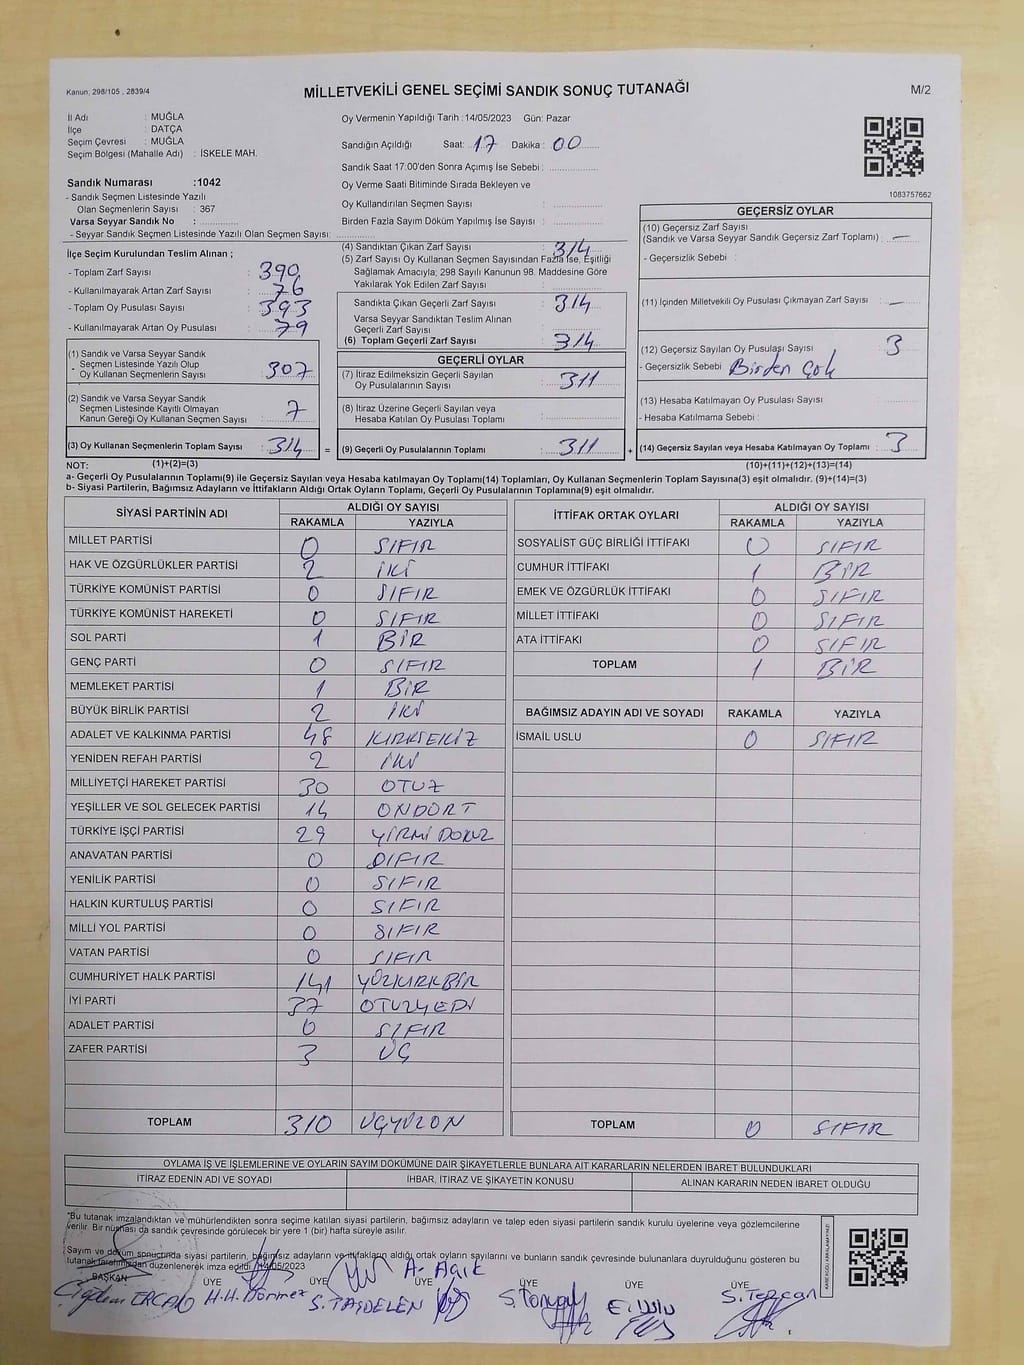 Kanun, 298/105 , 2839/4
MİLLETVEKİLİ GENEL SEÇİMİ SANDIK SONUÇ TUTANAĞI
M/2
İl Adı : MUĞLA
İlçe : DATÇA
Seçim Çevresi : MUĞLA
Seçim Bölgesi (Mahalle Adı) : İSKELE MAH.
Oy Vermenin Yapıldığı Tarih :14/05/2023 Gün: Pazar
Sandığın Açıldığı Saat: 17 Dakika : 00
Sandık Saat 17:00'den Sonra Açımış İse Sebebi :
Oy Verme Saati Bitiminde Sırada Bekleyen ve
Oy Kullandırılan Seçmen Sayısı :
Birden Fazla Sayım Döküm Yapılmış İse Sayısı :
1083757662
Sandık Numarası :1042
- Sandık Seçmen Listesinde Yazılı
Olan Seçmenlerin Sayısı : 367
Varsa Seyyar Sandık No :
- Seyyar Sandık Seçmen Listesinde Yazılı Olan Seçmen Sayısı:
İlçe Seçim Kurulundan Teslim Alınan ;
- Toplam Zarf Sayısı : 390
- Kullanılmayarak Artan Zarf Sayısı : 76
- Toplam Oy Pusulası Sayısı : 393
- Kullanılmayarak Artan Oy Pusulası : 79
(1) Sandık ve Varsa Seyyar Sandık
Seçmen Listesinde Yazılı Olup
Oy Kullanan Seçmenlerin Sayısı : 307
(2) Sandık ve Varsa Seyyar Sandık
Seçmen Listesinde Kayıtlı Olmayan
Kanun Gereği Oy Kullanan Seçmen Sayısı : 7
(3) Oy Kullanan Seçmenlerin Toplam Sayısı : 314 =
(4) Sandıktan Çıkan Zarf Sayısı : 314
(5) Zarf Sayısı Oy Kullanan Seçmen Sayısından Fazla İse, Eşitliği
Sağlamak Amacıyla; 298 Sayılı Kanunun 98. Maddesine Göre
Yakılarak Yok Edilen Zarf Sayısı :
Sandıkta Çıkan Geçerli Zarf Sayısı : 314
Varsa Seyyar Sandıktan Teslim Alınan
Geçerli Zarf Sayısı :
(6) Toplam Geçerli Zarf Sayısı : 314
GEÇERLİ OYLAR
(7) İtiraz Edilmeksizin Geçerli Sayılan
Oy Pusulalarının Sayısı : 311
(8) İtiraz Üzerine Geçerli Sayılan veya
Hesaba Katılan Oy Pusulası Toplamı :
(9) Geçerli Oy Pusulalarının Toplamı : 311 +
GEÇERSİZ OYLAR
(10) Geçersiz Zarf Sayısı
(Sandık ve Varsa Seyyar Sandık Geçersiz Zarf Toplamı) : —
- Geçersizlik Sebebi :
(11) İçinden Milletvekili Oy Pusulası Çıkmayan Zarf Sayısı : —
(12) Geçersiz Sayılan Oy Pusulası Sayısı : 3
- Geçersizlik Sebebi : Birden Çok
(13) Hesaba Katılmayan Oy Pusulası Sayısı :
- Hesaba Katılmama Sebebi :
(14) Geçersiz Sayılan veya Hesaba Katılmayan Oy Toplamı : 3
NOT: (1)+(2)=(3) (10)+(11)+(12)+(13)=(14)
a- Geçerli Oy Pusulalarının Toplamı(9) ile Geçersiz Sayılan veya Hesaba katılmayan Oy Toplamı(14) Toplamları, Oy Kullanan Seçmenlerin Toplam Sayısına(3) eşit olmalıdır. (9)+(14)=(3)
b- Siyasi Partilerin, Bağımsız Adayların ve İttifakların Aldığı Ortak Oyların Toplamı, Geçerli Oy Pusulalarının Toplamına(9) eşit olmalıdır.
SİYASİ PARTİNİN ADI ALDIĞI OY SAYISI
RAKAMLA YAZIYLA
MİLLET PARTİSİ 0 SIFIR
HAK VE ÖZGÜRLÜKLER PARTİSİ 2 İKİ
TÜRKİYE KOMÜNİST PARTİSİ 0 SIFIR
TÜRKİYE KOMÜNİST HAREKETİ 0 SIFIR
SOL PARTİ 1 BİR
GENÇ PARTİ 0 SIFIR
MEMLEKET PARTİSİ 1 BİR
BÜYÜK BİRLİK PARTİSİ 2 İKİ
ADALET VE KALKINMA PARTİSİ 48 KIRKSEKİZ
YENİDEN REFAH PARTİSİ 2 İKİ
MİLLİYETÇİ HAREKET PARTİSİ 30 OTUZ
YEŞİLLER VE SOL GELECEK PARTİSİ 14 ONDÖRT
TÜRKİYE İŞÇİ PARTİSİ 29 YİRMİ DOKUZ
ANAVATAN PARTİSİ 0 SIFIR
YENİLİK PARTİSİ 0 SIFIR
HALKIN KURTULUŞ PARTİSİ 0 SIFIR
MİLLİ YOL PARTİSİ 0 SIFIR
VATAN PARTİSİ 0 SIFIR
CUMHURİYET HALK PARTİSİ 141 YÜZKIRKBİR
İYİ PARTİ 37 OTUZYEDİ
ADALET PARTİSİ 0 SIFIR
ZAFER PARTİSİ 3 ÜÇ
TOPLAM 310 ÜÇYÜZON
İTTİFAK ORTAK OYLARI ALDIĞI OY SAYISI
RAKAMLA YAZIYLA
SOSYALİST GÜÇ BİRLİĞİ İTTİFAKI 0 SIFIR
CUMHUR İTTİFAKI 1 BİR
EMEK VE ÖZGÜRLÜK İTTİFAKI 0 SIFIR
MİLLET İTTİFAKI 0 SIFIR
ATA İTTİFAKI 0 SIFIR
TOPLAM 1 BİR
BAĞIMSIZ ADAYIN ADI VE SOYADI RAKAMLA YAZIYLA
İSMAİL USLU 0 SIFIR
TOPLAM 0 SIFIR
OYLAMA İŞ VE İŞLEMLERİNE VE OYLARIN SAYIM DÖKÜMÜNE DAİR ŞİKAYETLERLE BUNLARA AİT KARARLARIN NELERDEN İBARET BULUNDUKLARI
İTİRAZ EDENİN ADI VE SOYADI İHBAR, İTİRAZ VE ŞİKAYETİN KONUSU ALINAN KARARIN NEDEN İBARET OLDUĞU
"Bu tutanak imzalandıktan ve mühürlendikten sonra seçime katılan siyasi partilerin, bağımsız adayların ve talep eden siyasi partilerin sandık kurulu üyelerine veya gözlemcilerine
verilir. Bir nüshası da sandık çevresinde görülecek bir yere 1 (bir) hafta süreyle asılır.
Sayım ve döküm sonucunda siyasi partilerin, bağımsız adayların ve ittifakların aldığı ortak oyların sayılarını ve bunların sandık çevresinde bulunanlara duyrulduğunu gösteren bu
tutanak tarafımızdan düzenlenerek imza edildi. 14/05/2023
BAŞKAN ÜYE ÜYE ÜYE ÜYE ÜYE ÜYE
A. Açık
Çiğdem ERCAN H.H. Dönmez S. TAŞDELEN S. Tezcan